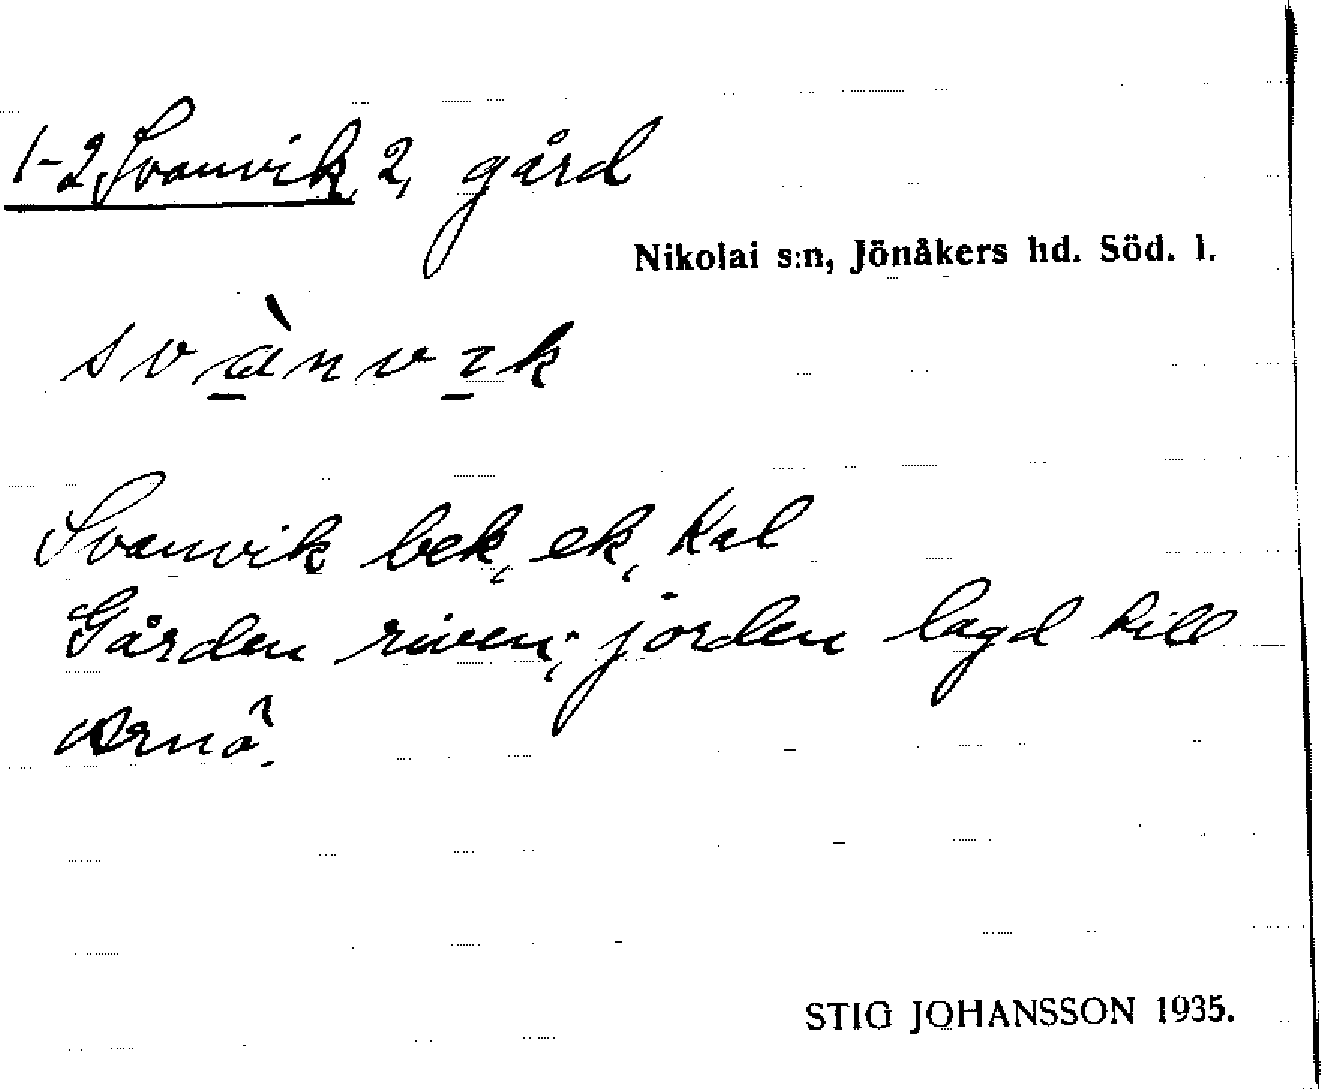 1-2 Svanvik, 2, gård
Nikolai s:n, Jönåkers hd. Söd. l.
svànvik
Svanvik bek, ek, Kal
Gården riven; jorden lagd till
Arnö.
STIG JOHANSSON 1935.